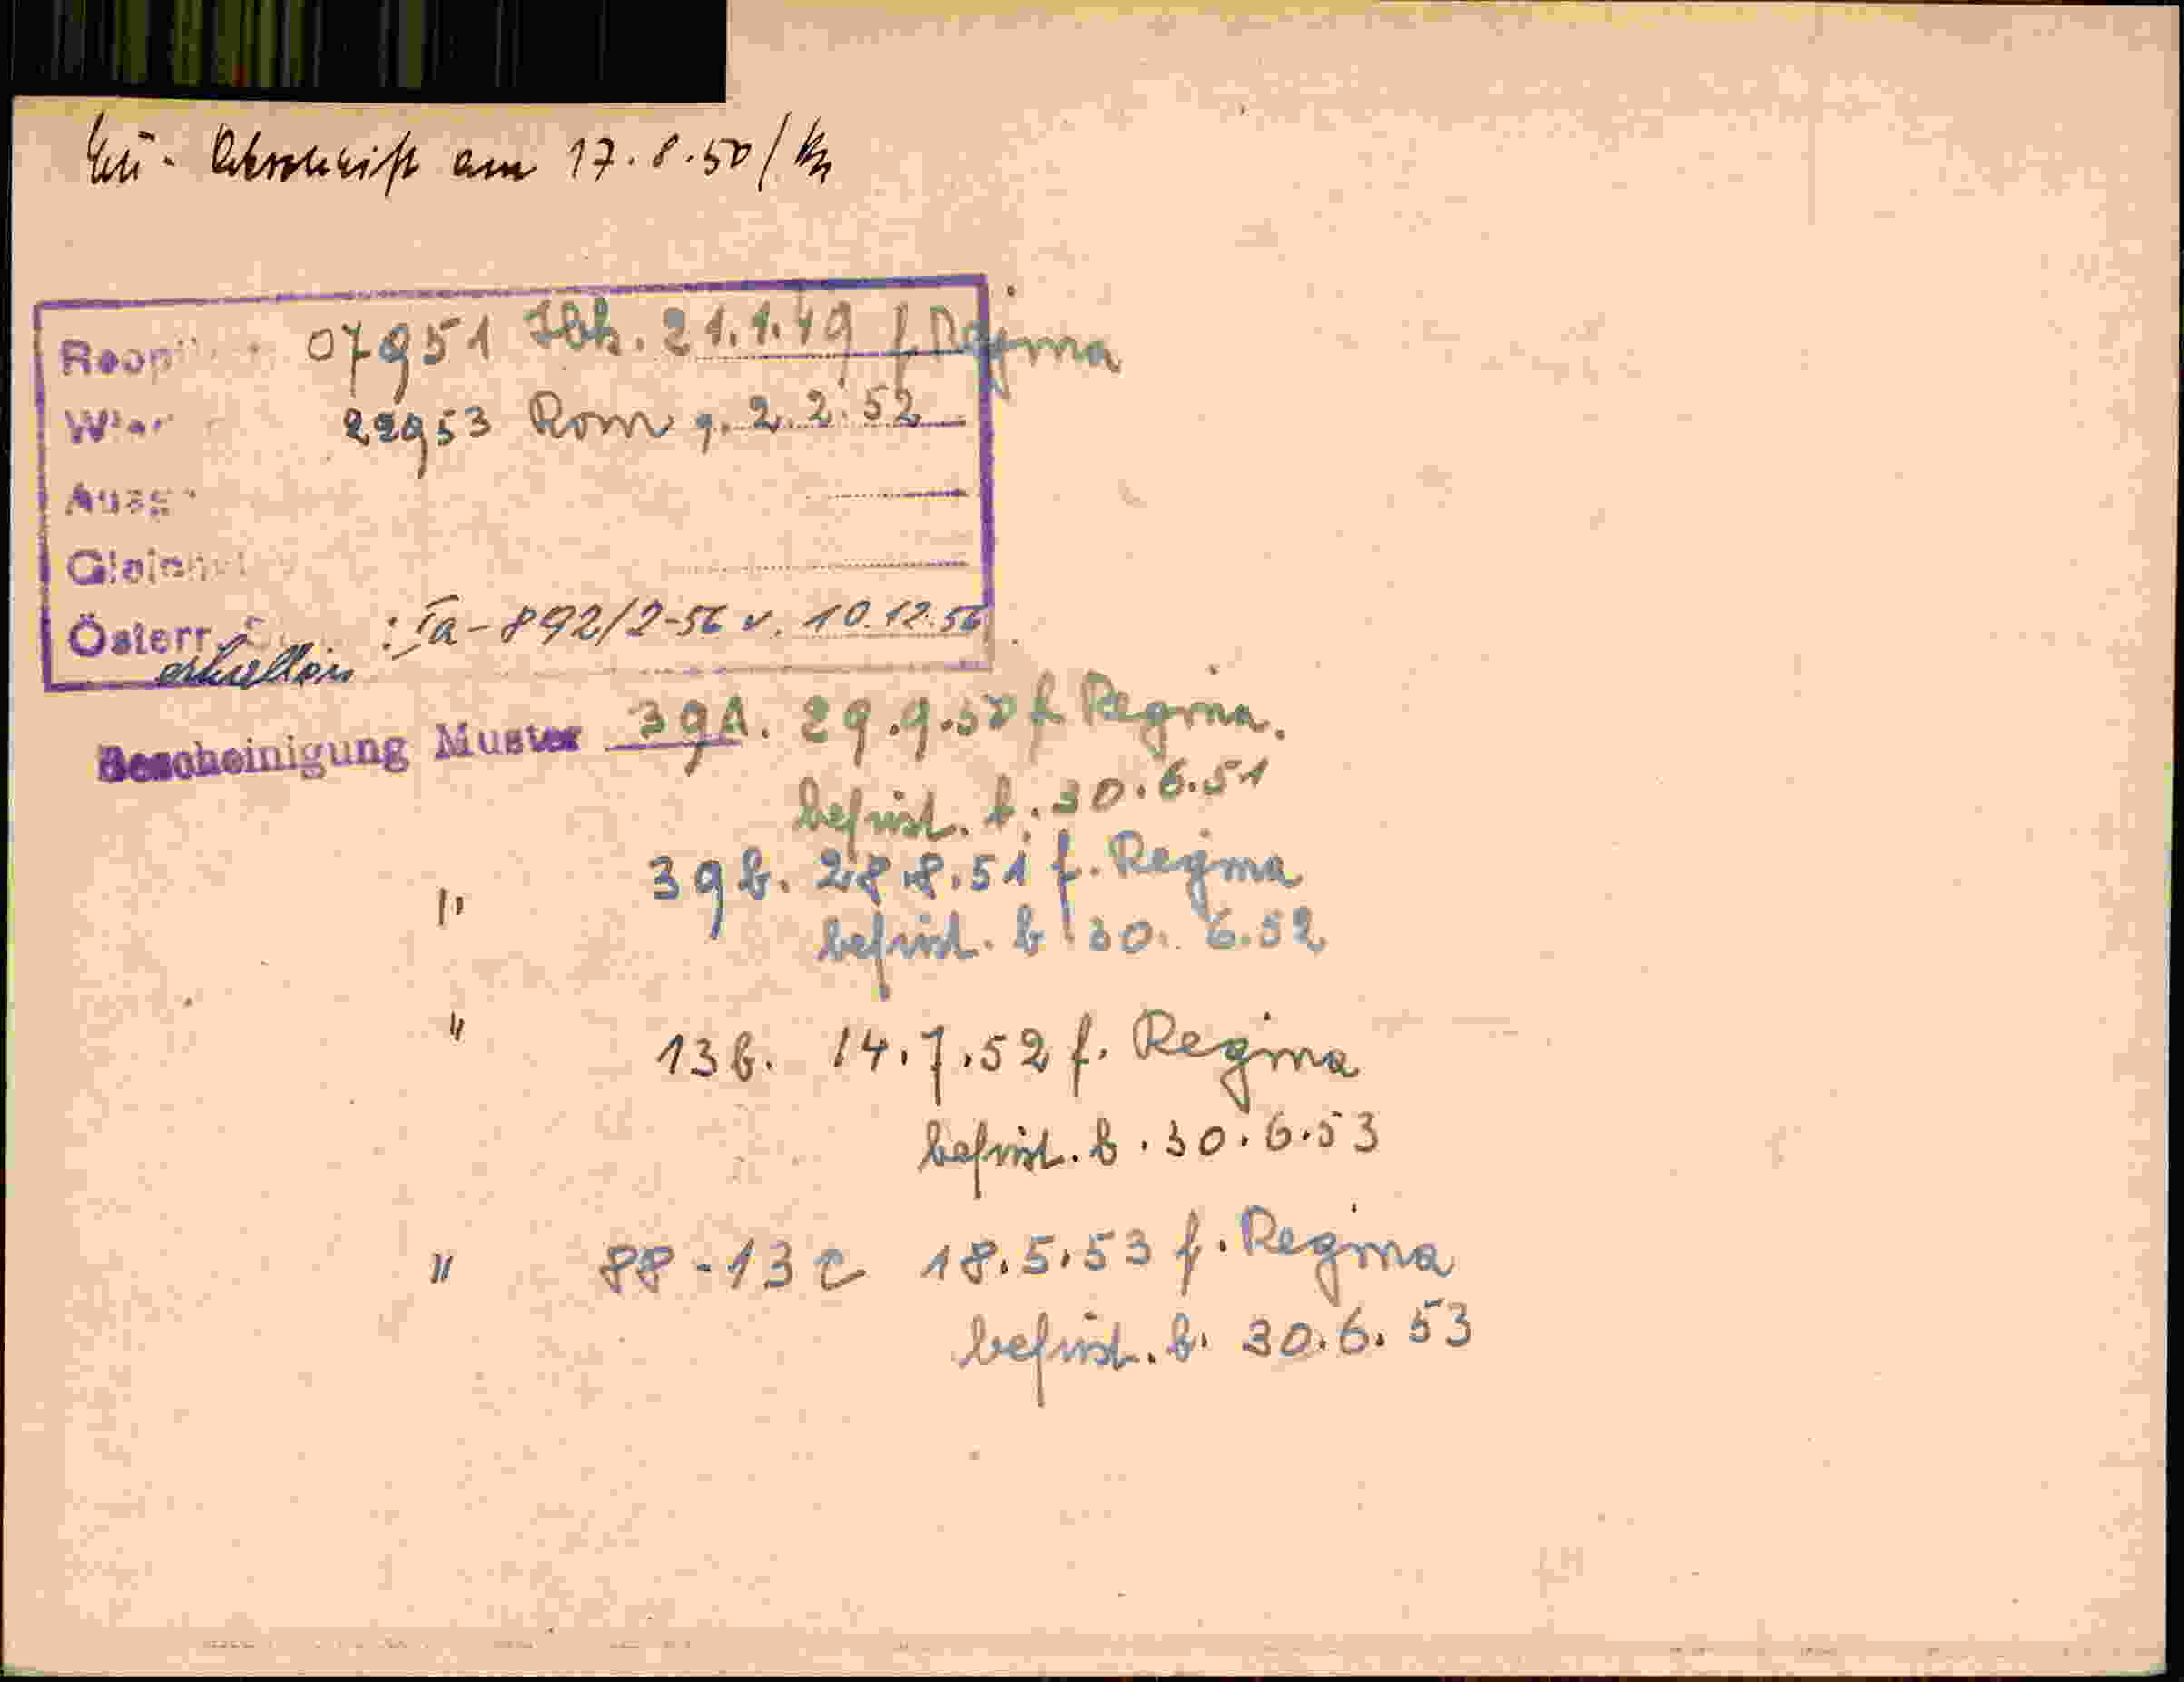 Abschrift am 17.8.50/
07951 Ibk. 21.1.49 f Regina
22953 Rom g. 2.2.52
Ausg
Österr. : Ia-892/2-56 v. 10.12.56
erhalten
Bescheinigung Muster 39A. 29.9.50 f Regina.
befrist. b. 30.6.51
" 39b. 28.8.51 f. Regina
befrist. b. 30.6.52
" 13b. 14.7.52 f. Regina
befrist. b. 30.6.53
" 88-13c 18.5.53 f. Regina
befrist. b. 30.6.53